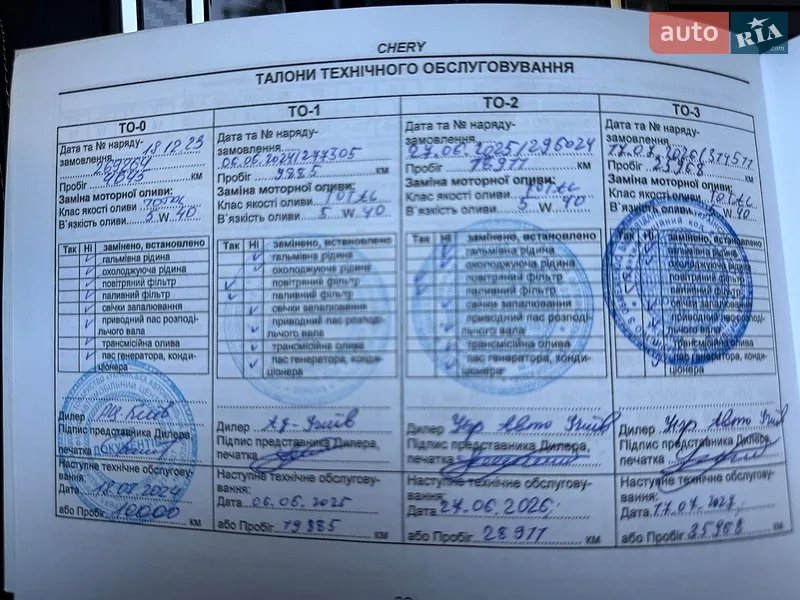 auto RIA .com
CHERY
ТАЛОНИ ТЕХНІЧНОГО ОБСЛУГОВУВАННЯ
ТО-0
Дата та № наряду-
замовлення 18.12.23
Пробіг км
Заміна моторної оливи:
Клас якості оливи TOTAL
В`язкість оливи 5 W 40
Так Ні замінено, встановлено
гальмівна рідина
охолоджуюча рідина
повітряний фільтр
паливний фільтр
свічки запалювання
приводний пас розподі-
льчого вала
трансмісійна олива
пас генератора, конди-
ціонера
Дилер
Підпис представника Дилера,
печатка
Наступне технічне обслугову-
вання:
Дата 2024
або Пробіг 10000 км
ТО-1
Дата та № наряду-
замовлення
06.06.2024/277305
Пробіг 9885 км
Заміна моторної оливи:
Клас якості оливи TOTAL
В`язкість оливи 5 W 40
Так Ні замінено, встановлено
гальмівна рідина
охолоджуюча рідина
повітряний фільтр
паливний фільтр
свічки запалювання
приводний пас розподі-
льчого вала
трансмісійна олива
пас генератора, конди-
ціонера
Дилер
Підпис представника Дилера,
печатка
Наступне технічне обслугову-
вання:
Дата 06.06.2025
або Пробіг 19885 км
ТО-2
Дата та № наряду-
замовлення
27.06.2025/296024
Пробіг км
Заміна моторної оливи:
Клас якості оливи TOTAL
В`язкість оливи 5 W 40
Так Ні замінено, встановлено
гальмівна рідина
охолоджуюча рідина
повітряний фільтр
паливний фільтр
свічки запалювання
приводний пас розподі-
льчого вала
трансмісійна олива
пас генератора, конди-
ціонера
Дилер Укр Авто
Підпис представника Дилера,
печатка
Наступне технічне обслугову-
вання:
Дата 27.06.2026
або Пробіг 28911 км
ТО-3
Дата та № наряду-
замовлення
Пробіг 25968 км
Заміна моторної оливи:
Клас якості оливи TOTAL
В`язкість оливи 5 W 40
Так Ні замінено, встановлено
гальмівна рідина
охолоджуюча рідина
повітряний фільтр
паливний фільтр
свічки запалювання
приводний пас розподі-
льчого вала
трансмісійна олива
пас генератора, конди-
ціонера
Дилер Укр Авто
Підпис представника Дилера,
печатка
Наступне технічне обслугову-
вання:
Дата 2027
або Пробіг 35968 км